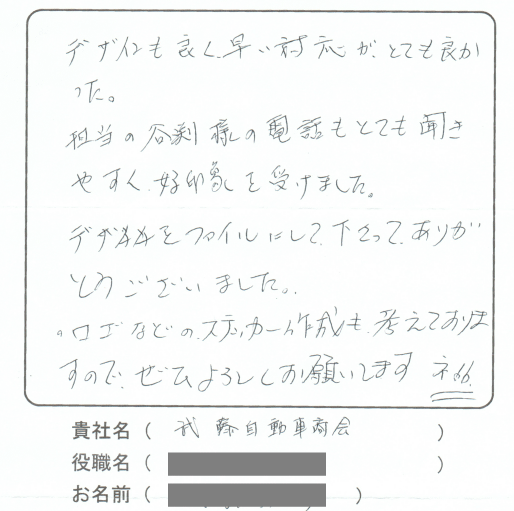 デザインも良く、早い対応が、とても良か
った。
担当の谷剥様の電話もとても聞き
やすく、好印象を受けました。
デザインをファイルにして、下さって、ありが
とうございました。
。ロゴなどのステッカー作成も、考えておりま
すので、ぜひよろしくお願いします
貴社名（ 武藤自動車商会 ）
役職名（ ）
お名前（ ）